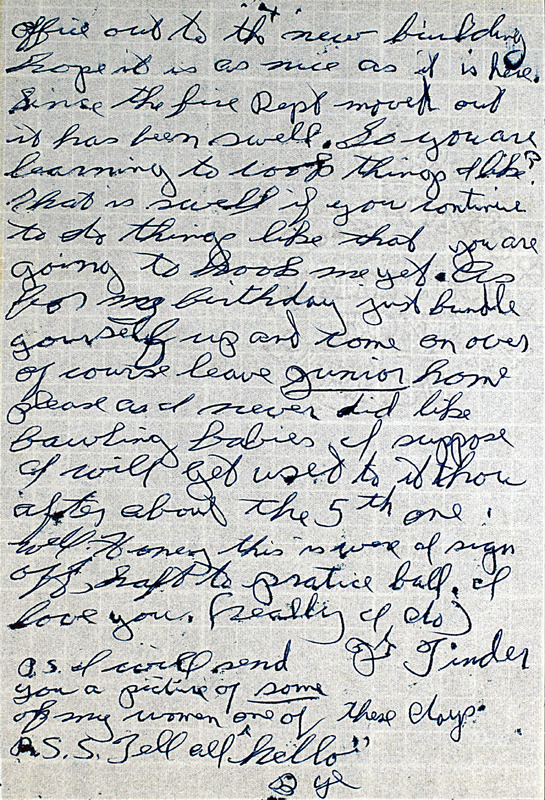 office out to the new building
hope it is as nice as it is here.
Since the fire Dept moved out
it has been swell. So you are
learning to cook things I like?
That is swell if you continue
to do things like that you are
going to hook me yet. As
for my birthday just bundle
yourself up and come on over
of course leave junior home
please as I never did like
bawling babies, I suppose
I will get used to it thou
after about the 5th one.
well Honey this is were I sign
off, haft to pratice ball. I
love you. (really I do)
Tinder
P.S. I will send
you a picture of some
of my women one of these days.
P.S.S. Tell all "hello"
Bye